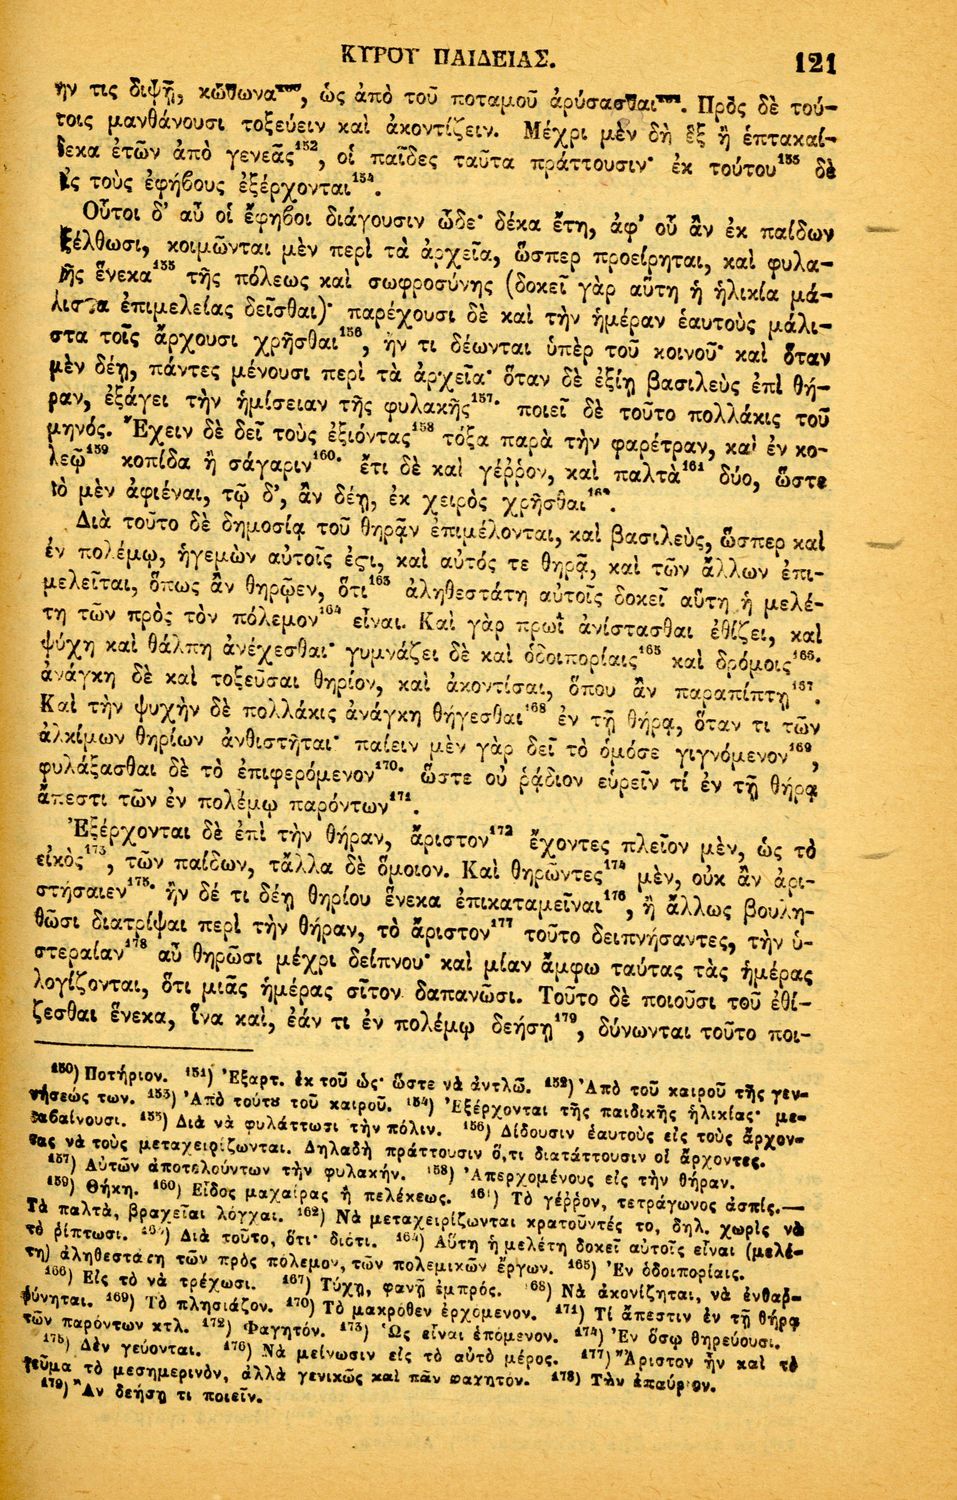 ΚΥΡΟΥ ΠΑΙΔΕΙΑΣ. 121
ἤν τις διψῇ, κώθωνα¹⁵⁰, ὡς ἀπὸ τοῦ ποταμοῦ ἀρύσασθαι¹⁵¹. Πρὸς δὲ τού-
τοις μανθάνουσι τοξεύειν καὶ ἀκοντίζειν. Μέχρι μὲν δὴ ἓξ ἢ ἑπτακαί-
δεκα ἐτῶν ἀπὸ γενεᾶς¹⁵², οἱ παῖδες ταῦτα πράττουσιν· ἐκ τούτου¹⁵³ δὲ
εἰς τοὺς ἐφήβους ἐξέρχονται¹⁵⁴.
Οὗτοι δ’ αὖ οἱ ἔφηβοι διάγουσιν ὧδε· δέκα ἔτη, ἀφ’ οὗ ἂν ἐκ παίδων
ἐξέλθωσι, κοιμῶνται μὲν περὶ τὰ ἀρχεῖα, ὥσπερ προείρηται, καὶ φυλα-
κῆς ἕνεκα¹⁵⁵ τῆς πόλεως καὶ σωφροσύνης (δοκεῖ γὰρ αὕτη ἡ ἡλικία μά-
λιστα ἐπιμελείας δεῖσθαι)· παρέχουσι δὲ καὶ τὴν ἡμέραν ἑαυτοὺς μάλι-
στα τοῖς ἄρχουσι χρῆσθαι¹⁵⁶, ἤν τι δέωνται ὑπὲρ τοῦ κοινοῦ· καὶ ὅταν
μὲν δέῃ, πάντες μένουσι περὶ τὰ ἀρχεῖα· ὅταν δὲ ἐξίῃ βασιλεὺς ἐπὶ θή-
ραν, ἐξάγει τὴν ἡμίσειαν τῆς φυλακῆς¹⁵⁷· ποιεῖ δὲ τοῦτο πολλάκις τοῦ
μηνός. Ἔχειν δὲ δεῖ τοὺς ἐξιόντας¹⁵⁸ τόξα παρὰ τὴν φαρέτραν, καὶ ἐν κο-
λεῷ¹⁵⁹ κοπίδα ἢ σάγαριν¹⁶⁰· ἔτι δὲ καὶ γέῤῥον, καὶ παλτὰ¹⁶¹ δύο, ὥστε
τὸ μὲν ἀφιέναι, τῷ δ’, ἂν δέῃ, ἐκ χειρὸς χρῆσθαι¹⁶².
Διὰ τοῦτο δὲ δημοσίᾳ τοῦ θηρᾷν ἐπιμέλονται, καὶ βασιλεὺς, ὥσπερ καὶ
ἐν πολέμῳ, ἡγεμὼν αὐτοῖς ἐστι, καὶ αὐτός τε θηρᾷ, καὶ τῶν ἄλλων ἐπι-
μελεῖται, ὅπως ἂν θηρῷεν, ὅτι¹⁶³ ἀληθεστάτη αὐτοῖς δοκεῖ αὕτη ἡ μελέ-
τη τῶν πρὸς τὸν πόλεμον¹⁶⁴ εἶναι. Καὶ γὰρ πρωῒ ἀνίστασθαι ἐθίζει, καὶ
ψύχη καὶ θάλπη ἀνέχεσθαι· γυμνάζει δὲ καὶ ὁδοιπορίαις¹⁶⁵ καὶ δρόμοις¹⁶⁶·
ἀνάγκη δὲ καὶ τοξεῦσαι θηρίον, καὶ ἀκοντίσαι, ὅπου ἂν παραπίπτῃ¹⁶⁷.
Καὶ τὴν ψυχὴν δὲ πολλάκις ἀνάγκη θήγεσθαι¹⁶⁸ ἐν τῇ θήρᾳ, ὅταν τι τῶν
ἀλκίμων θηρίων ἀνθιστῆται· παίειν μὲν γὰρ δεῖ τὸ ὁμόσε γιγνόμενον¹⁶⁹,
φυλάξασθαι δὲ τὸ ἐπιφερόμενον¹⁷⁰· ὥστε οὐ ῥᾴδιον εὑρεῖν τί ἐν τῇ θήρᾳ
ἄπεστι τῶν ἐν πολέμῳ παρόντων¹⁷¹.
Ἐξέρχονται δὲ ἐπὶ τὴν θήραν, ἄριστον¹⁷² ἔχοντες πλεῖον μὲν, ὡς τὸ
εἰκὸς¹⁷³, τῶν παίδων, τἄλλα δὲ ὅμοιον. Καὶ θηρῶντες¹⁷⁴ μὲν, οὐκ ἂν ἀρι-
στήσαιεν¹⁷⁵· ἢν δέ τι δέῃ θηρίου ἕνεκα ἐπικαταμεῖναι¹⁷⁶, ἢ ἄλλως βουλη-
θῶσι διατρίψαι περὶ τὴν θήραν, τὸ ἄριστον¹⁷⁷ τοῦτο δειπνήσαντες, τὴν ὑ-
στεραίαν¹⁷⁸ αὖ θηρῶσι μέχρι δείπνου· καὶ μίαν ἄμφω ταύτας τὰς ἡμέρας
λογίζονται, ὅτι μιᾶς ἡμέρας σῖτον δαπανῶσι. Τοῦτο δὲ ποιοῦσι τοῦ ἐθί-
ζεσθαι ἕνεκα, ἵνα καὶ, ἐάν τι ἐν πολέμῳ δεήσῃ¹⁷⁹, δύνωνται τοῦτο ποι-
¹⁵⁰) Ποτήριον. ¹⁵¹) Ἐξαρτ. ἐκ τοῦ ὡς· ὥστε νὰ ἀντλῶ. ¹⁵²) Ἀπὸ τοῦ καιροῦ τῆς γεν-
νήσεώς των. ¹⁵³) Ἀπὸ τούτου τοῦ καιροῦ. ¹⁵⁴) Ἐξέρχονται τῆς παιδικῆς ἡλικίας· με-
ταβαίνουσι. ¹⁵⁵) Διὰ νὰ φυλάττωσι τὴν πόλιν. ¹⁵⁶) Δίδουσιν ἑαυτοὺς εἰς τοὺς ἄρχον-
τας νὰ τοὺς μεταχειρίζωνται. Δηλαδὴ πράττουσιν ὅ,τι διατάττουσιν οἱ ἄρχοντες.
¹⁵⁷) Αὐτῶν ἀποτελούντων τὴν φυλακήν. ¹⁵⁸) Ἀπερχομένους εἰς τὴν θήραν.
¹⁵⁹) Θήκη. ¹⁶⁰) Εἶδος μαχαίρας ἢ πελέκεως. ¹⁶¹) Τὸ γέῤῥον, τετράγωνος ἀσπίς.—
Τὰ παλτὰ, βραχεῖαι λόγχαι. ¹⁶²) Νὰ μεταχειρίζωνται κρατοῦντές το, δηλ. χωρὶς νὰ
τὸ ῥίπτωσι. ¹⁶³) Διὰ τοῦτο, ὅτι· διότι. ¹⁶⁴) Αὕτη ἡ μελέτη δοκεῖ αὐτοῖς εἶναι (μελέ-
τη) ἀληθεστάτη τῶν πρὸς πόλεμον, τῶν πολεμικῶν ἔργων. ¹⁶⁵) Ἐν ὁδοιπορίαις.
¹⁶⁶) Εἰς τὸ νὰ τρέχωσι. ¹⁶⁷) Τύχῃ, φανῇ ἐμπρός. ¹⁶⁸) Νὰ ἀκονίζηται, νὰ ἐνθαῤ-
ῥύνηται. ¹⁶⁹) Τὸ πλησιάζον. ¹⁷⁰) Τὸ μακρόθεν ἐρχόμενον. ¹⁷¹) Τί ἄπεστιν ἐν τῇ θήρᾳ
τῶν παρόντων κτλ. ¹⁷²) Φαγητόν. ¹⁷³) Ὡς εἶναι ἑπόμενον. ¹⁷⁴) Ἐν ὅσῳ θηρεύουσι.
¹⁷⁵) Δὲν γεύονται. ¹⁷⁶) Νὰ μείνωσιν εἰς τὸ αὐτὸ μέρος. ¹⁷⁷) Ἄριστον ἦν καὶ τὸ
γεῦμα τὸ μεσημερινὸν, ἀλλὰ γενικῶς καὶ πᾶν φαγητόν. ¹⁷⁸) Τὴν ἐπαύριον.
¹⁷⁹) Ἂν δεήσῃ τι ποιεῖν.